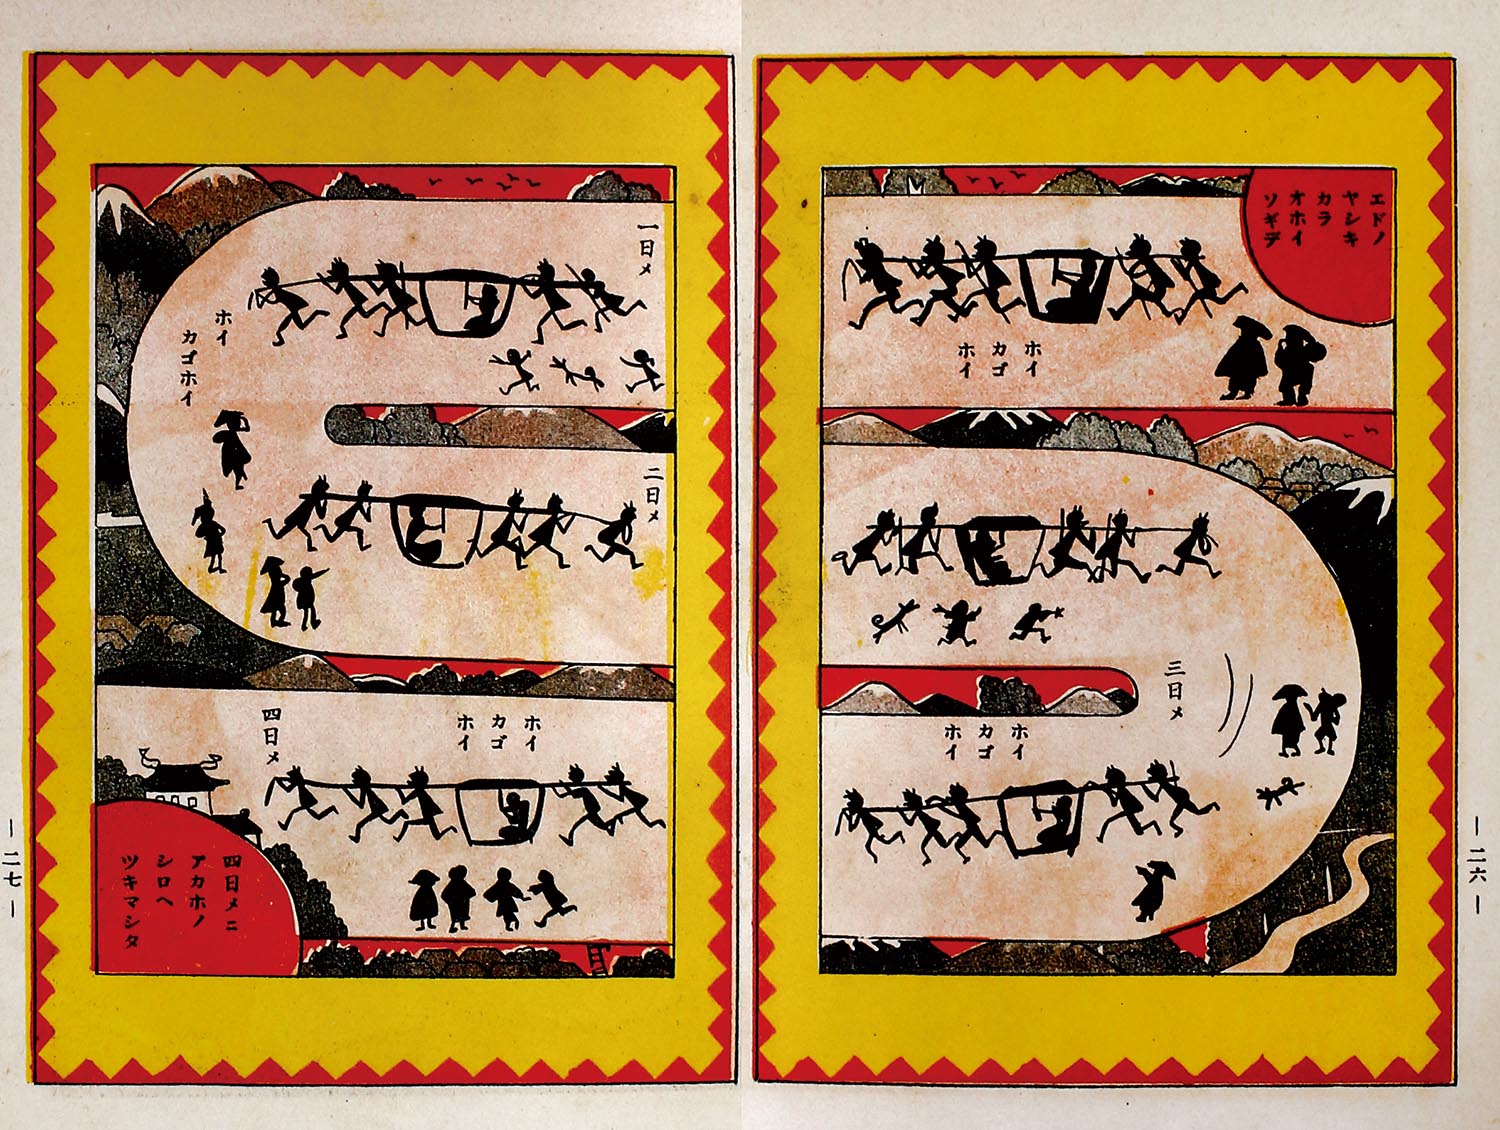 エドノ
ヤシキ
カラ
オホイ
ソギデ
ホイ
カゴ
ホイ
一日メ
ホイ
カゴホイ
二日メ
三日メ
ホイ
カゴ
ホイ
ホイ
カゴ
ホイ
四日メ
四日メニ
アカホノ
シロヘ
ツキマシタ
―二六―
―二七―